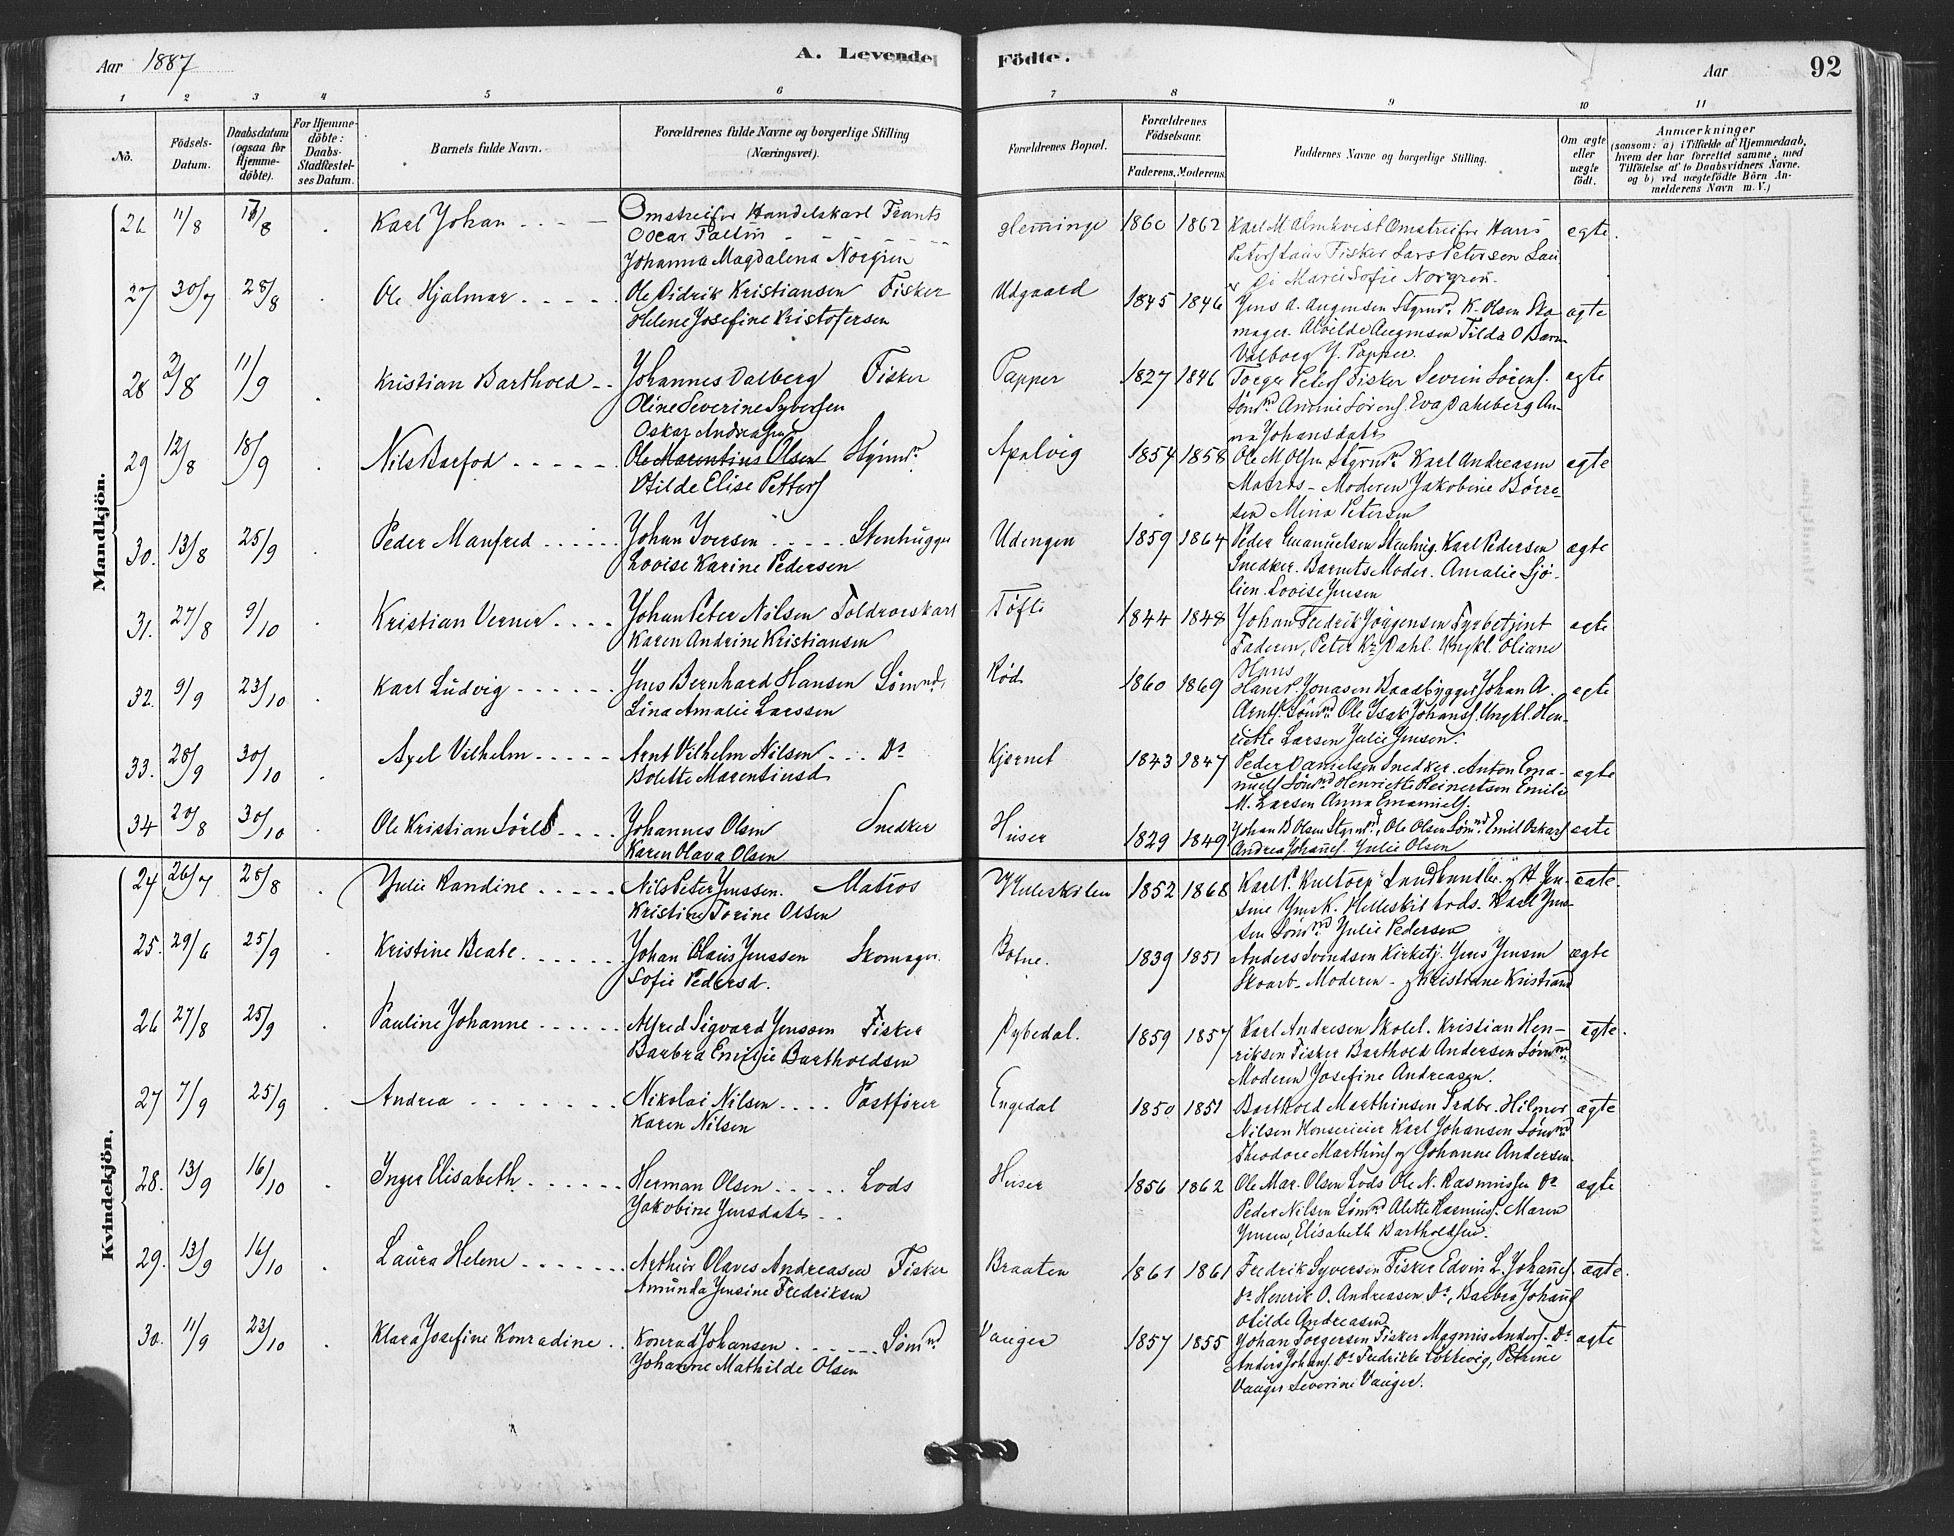 Aar 1887
A. Levende Födte.
Aar
92
1 2 3 4 5 6 7 8 9 10 11
No.
Födsels-Datum.
Daabsdatum (ogsaa for Hjemme-döbte).
For Hjemme-döbte: Daabs-Stadfestel-ses Datum.
Barnets fulde Navn.
Forældrenes fulde Navne og borgerlige Stilling (Næringsvei).
Forældrenes Bopæl.
Forældrenes Födselsaar.
Faderens. Moderens.
Faddernes Navne og borgerlige Stilling.
Om ægte eller uægte födt.
Anmærkninger
(saasom: a) i Tilfælde af Hjemmedaab,
hvem der har forrettet samme, med
Tilföielse af to Daabsvidners Navne,
og b) ved uægtefödte Börn An-
melderens Navn m. V.)
Mandkjön.
26 11/8 17/8 Karl Johan Omstreifer Handelskarl Frants Heminge 1860 1862 Karl Malmkvist Omstreifer Hans ægte.
Oscar Faltin
Johanna Magdalena Norgren Marie Sofie Norgren
27 30/7 28/8 Ole Hjalmar Ole Didrik Kristiansen Fisker Udgaard 1845 1846 Jens A. Augensen Styrmd. K. Olsen Sko- ægte
Helene Josefine Kristofersen mager. Alvilde Augensen Tilda O Barn
Valborg J. Papper.
28 2/8 11/9 Kristian Barthold Johannes Dalberg Fisker Papper 1827 1846 Torger Peters Fisker Severin Sörens. ægte
Oline Severine Syversen Eva Dahlberg An-
na Johansdatr
29 12/8 18/9 Nils Barfod Oskar Andreasen
Ole Marentius Olsen Styrmd. Apalvig 1854 1858 Ole M Olsen Styrmd. Karl Andreasen ægte
Otilde Elise Petters Matros - Moderen Jakobine Börre-
sen Mina Petersen
30. 13/8 25/9 Peder Manfred Johan Iversen Stenhugger Udengen 1859 1864 Peder Emanuelsen Stenhug. Karl Pedersen ægte
Lovise Karine Pedersen Snedker. Barnets Moder. Amalie Sjö-
lien. Lovise Jensen
31. 27/8 9/10 Kristian Verner Johan Peter Nilsen Toldroerskarl Töfte 1844 1848 Johan Fredrik Jörgensen Fyrbetjent ægte
Karen Andrine Kristiansen Faderen, Peter Kr. Dahl. Ungkl. Oliane
Hans
32. 9/9 23/10 Karl Ludvig Jens Bernhard Hansen Sömnd. Röd 1860 1869 Jonasen Baadbygger Johan A. ægte
Lina Amalie Larssen Arnts. Sömnd. Ole Isak Johans. Ungkl. Hen-
riette Larsen Julie Jensen.
33. 28/9 30/10 Axel Vilhelm Arnt Vilhelm Nilsen Do Kjernet 1843 1847 Peder Danielsen Snedker. Anton Ema- ægte
Bolette Marentiusd nuels Sömnd Henriette Reinertsen Emilie
M. Larsen Anna Emanuels.
34 20/8 30/10 Ole Kristian Johannes Olsen Snedker Huser 1829 1849 Johan B Olsen Styrmd, Ole Olsen Sömnd. Emil Oskars ægte
Karen Olava Olsen Andrea Johannes. Julie Olsen
Kvindekjön.
24 26/7 28/8 Julie Randine Nils Peter Jenssen. Matros 1852 1868 Karl ægte.
Kristine Torine Olsen
sen Sömnd Julie Pedersen
25. 29/6 25/9 Kristine Beate Johan Olaus Jenssen Skomager. Botne. 1839 1851 Anders Svendsen Kirketj. Jens Jensen ægte
Sofie Pedersd. Moderen - Kristiane Kristians
26 27/8 25/9 Pauline Johanne Alfred Sigvard Jenssen Fisker Dybedal. 1859 1857 Karl Andresen Skolel. Kristian Hen- ægte.
Barbra Emilie Bartholdsen riksen Fisker Barthold Andersen Sömnd
Moderen Josefine Andreasen.
27 7/9 25/9 Andrea Nikolai Nilsen Postförer Engedal 1850 1851 Barthold Marthinsen Grdbr. Hilmer ægte
Karen Nilsen Nilsen Karl Johansen Sömnd
Theodore Marthins og Johanne Andersen.
28. 13/9 16/10 Inger Elisabeth Herman Olsen Lods Huser 1856 1862 Ole Mar. Olsen Lods Ole N. Rasmussen Do ægte
Jakobine Jensdatr Peder Nilsen Sömnd Alette Rasmus. Maren
Jensen, Elisabeth Bartholdsen.
29. 13/9 16/10 Laura Helene Arthur Olaves Andreasen Fisker Braaten 1861 1861 Fredrik Syversen Fisker Edvin L. Johannes. ægte.
Amunda Jensine Fredriksen Do Henrik O. Andreassen Do, Barbra Johans
Otilde Andreasen
30. 11/9 23/10 Klara Josefine Konradine Konrad Johansen Sömnd Vauger 1857 1855 Johan Torgersen Fisker Magnus Anders. Do ægte
Johanne Mathilde Olsen Anders Johans. Do Fredrikke Petrine
Vauger Severine Vauger.